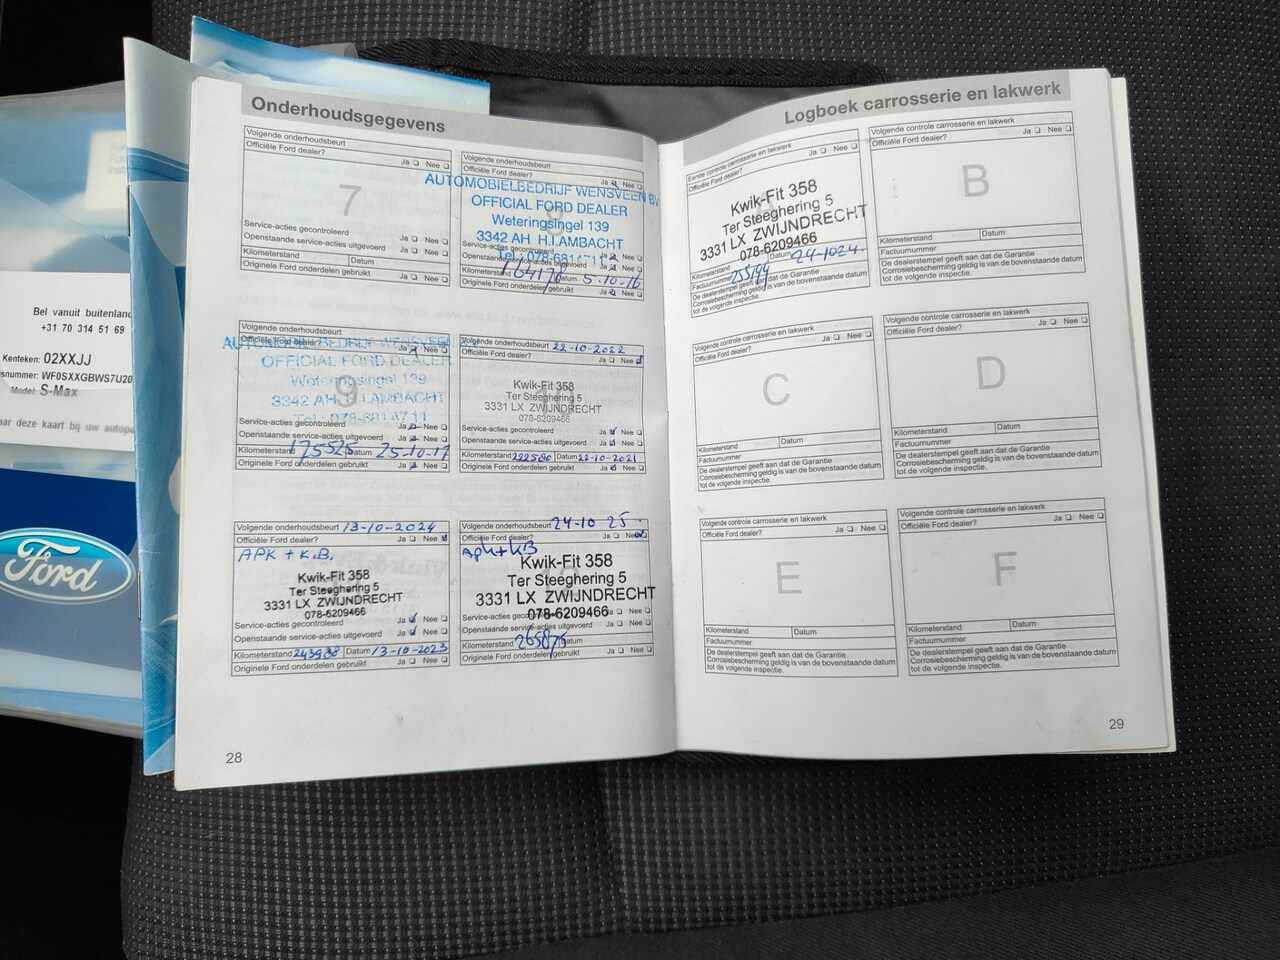 Bel vanuit buitenland
+31 70 314 51 69
Kenteken: 02XXJJ
snummer: WF0SXXGBWS7U20
Model: S-Max
aar deze kaart bij uw autopa
Ford
Onderhoudsgegevens
Volgende onderhoudsbeurt
Officiële Ford dealer? Ja Nee
7
Service-acties gecontroleerd
Openstaande service-acties uitgevoerd Ja Nee
Ja Nee
Kilometerstand Datum
Originele Ford onderdelen gebruikt Ja Nee
Volgende onderhoudsbeurt
Officiële Ford dealer? Ja Nee
AUTOMOBIELBEDRIJF WENSVEEN BV
OFFICIAL FORD DEALER
Weteringsingel 139
3342 AH H.I.AMBACHT
Service-acties gecontroleerd
Kilometerstand 164178 Datum 5-10-16
Originele Ford onderdelen gebruikt Ja Nee
Volgende onderhoudsbeurt
Officiële Ford dealer? Ja Nee
OFFICIAL FORD DEALER
Weteringsingel 139
9
3342 AH H.I.AMBACHT
Tel.: 078-6814711
Service-acties gecontroleerd
Openstaande service-acties uitgevoerd Ja Nee
Kilometerstand 175525 Datum 25-10-17
Originele Ford onderdelen gebruikt Ja Nee
Volgende onderhoudsbeurt 22-10-2022
Officiële Ford dealer? Ja Nee
Kwik-Fit 358
Ter Steeghering 5
3331 LX ZWIJNDRECHT
078-6209466
Service-acties gecontroleerd Ja Nee
Openstaande service-acties uitgevoerd Ja Nee
Kilometerstand 222580 Datum 22-10-2021
Originele Ford onderdelen gebruikt Ja Nee
Volgende onderhoudsbeurt 13-10-2024
Officiële Ford dealer? Ja Nee
APK + K.B.
Kwik-Fit 358
Ter Steeghering 5
3331 LX ZWIJNDRECHT
078-6209466
Service-acties gecontroleerd Ja Nee
Openstaande service-acties uitgevoerd Ja Nee
Kilometerstand 243988 Datum 13-10-2023
Originele Ford onderdelen gebruikt Ja Nee
Volgende onderhoudsbeurt 24-10 25.
Officiële Ford dealer? Ja Nee
Apk+KB
Kwik-Fit 358
Ter Steeghering 5
3331 LX ZWIJNDRECHT
078-6209466
Service-acties gecontroleerd Ja Nee
Openstaande service-acties uitgevoerd Ja Nee
Kilometerstand Datum
Originele Ford onderdelen gebruikt Ja Nee
28
Logboek carrosserie en lakwerk
Eerste controle carrosserie en lakwerk
Officiële Ford dealer? Ja Nee
Kwik-Fit 358
Ter Steeghering 5
3331 LX ZWIJNDRECHT
078-6209466
Kilometerstand Datum 24-1024.
Factuurnummer
De dealerstempel geeft aan dat de Garantie
Corrosiebescherming geldig is van de bovenstaande datum
tot de volgende inspectie.
Volgende controle carrosserie en lakwerk
Officiële Ford dealer? Ja Nee
B
Kilometerstand Datum
Factuurnummer
De dealerstempel geeft aan dat de Garantie
Corrosiebescherming geldig is van de bovenstaande datum
tot de volgende inspectie.
Volgende controle carrosserie en lakwerk
Officiële Ford dealer? Ja Nee
C
Kilometerstand Datum
Factuurnummer
De dealerstempel geeft aan dat de Garantie
Corrosiebescherming geldig is van de bovenstaande datum
tot de volgende inspectie.
Volgende controle carrosserie en lakwerk
Officiële Ford dealer? Ja Nee
D
Kilometerstand Datum
Factuurnummer
De dealerstempel geeft aan dat de Garantie
Corrosiebescherming geldig is van de bovenstaande datum
tot de volgende inspectie.
Volgende controle carrosserie en lakwerk
Officiële Ford dealer? Ja Nee
E
Kilometerstand Datum
Factuurnummer
De dealerstempel geeft aan dat de Garantie
Corrosiebescherming geldig is van de bovenstaande datum
tot de volgende inspectie.
Volgende controle carrosserie en lakwerk
Officiële Ford dealer? Ja Nee
F
Kilometerstand Datum
Factuurnummer
De dealerstempel geeft aan dat de Garantie
Corrosiebescherming geldig is van de bovenstaande datum
tot de volgende inspectie.
29